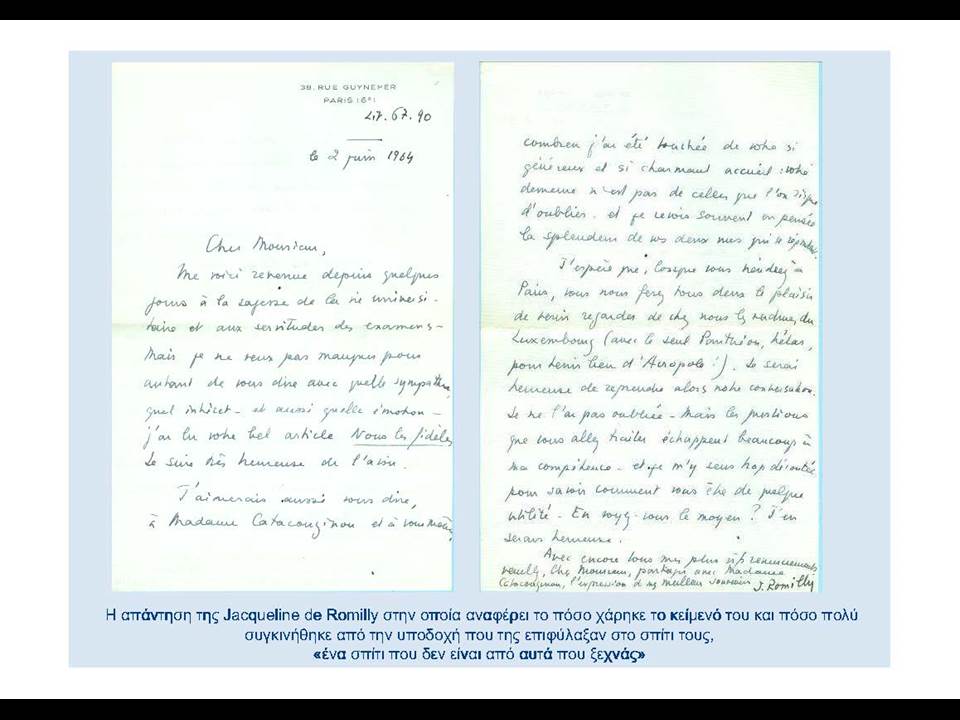 38, RUE GUYNEMER
PARIS (6e)
47.67.90
le 2 juin 1964
Cher Monsieur,
Me voici revenue depuis quelques
jours à la sagesse de la vie universi-
taire et aux servitudes des examens –
Mais je ne veux pas manquer pour
autant de vous dire avec quelle sympathie,
quel intérêt – et aussi quelle émotion –
j'ai lu votre bel article Nous les fidèles
Je suis très heureuse de l'avoir.
J'aimerais aussi vous dire,
à Madame Catacouzinou et à vous même,
combien j'ai été touchée de votre si
généreux et si charmant accueil : votre
demeure n'est pas de celles que l'on risque
d'oublier – et je revois souvent en pensée
la splendeur de vos deux vues qui se répondent.
J'espère que, lorsque vous viendrez à
Paris, vous nous ferez tous deux le plaisir
de venir regarder de chez nous les du
Luxembourg (avec le seul Panthéon, hélas,
pour tenir lieu d'Acropole !). Je serai
heureuse de reprendre alors notre conversation.
Je ne l'ai pas oubliée – Mais les questions
que vous allez traiter échappent beaucoup à
ma compétence – et je m'y sens trop déroutée
pour savoir comment vous être de quelque
utilité – En voyez-vous le moyen ? J'en
serais heureuse.
Avec encore tous mes plus vifs remerciements
veuillez, Cher Monsieur, partager avec Madame
Catacouzinou, l'expression de mes meilleurs souvenirs
J. Romilly
Η απάντηση της Jacqueline de Romilly στην οποία αναφέρει το πόσο χάρηκε το κείμενό του και πόσο πολύ
συγκινήθηκε από την υποδοχή που της επιφύλαξαν στο σπίτι τους,
«ένα σπίτι που δεν είναι από αυτά που ξεχνάς»